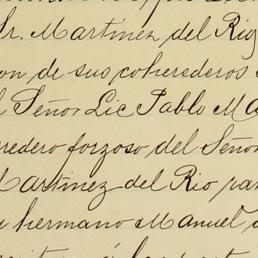 Sr. Martinez del Rio
on de sus coherederos
Señor Lic Pablo Ma
redero forzoso del Señor
Martinez del Rio par
hermano Manuel